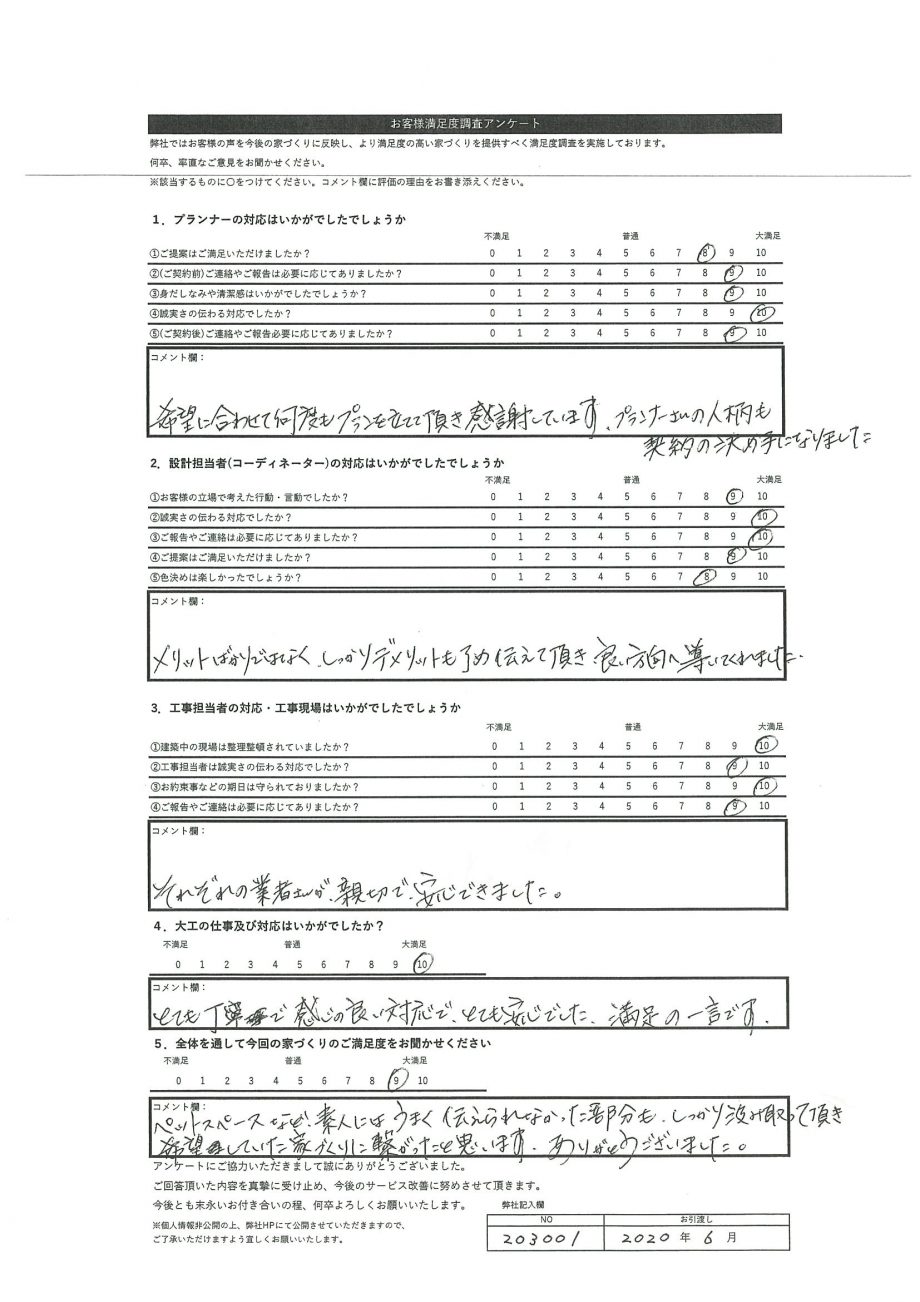 お客様満足度調査アンケート
弊社ではお客様の声を今後の家づくりに反映し、より満足度の高い家づくりを提供すべく満足度調査を実施しております。
何卒、率直なご意見をお聞かせください。
※該当するものに〇をつけてください。コメント欄に評価の理由をお書き添えください。
1．プランナーの対応はいかがでしたでしょうか
不満足 普通 大満足
①ご提案はご満足いただけましたか？ 0 1 2 3 4 5 6 7 8 9 10
②(ご契約前)ご連絡やご報告は必要に応じてありましたか？ 0 1 2 3 4 5 6 7 8 9 10
③身だしなみや清潔感はいかがでしたでしょうか？ 0 1 2 3 4 5 6 7 8 9 10
④誠実さの伝わる対応でしたか？ 0 1 2 3 4 5 6 7 8 9 10
⑤(ご契約後)ご連絡やご報告必要に応じてありましたか？ 0 1 2 3 4 5 6 7 8 9 10
コメント欄：
希望に合わせて何度もプランを立てて頂き感謝しています、プランナーさんの人柄も
契約の決め手になりました
2．設計担当者(コーディネーター)の対応はいかがでしたでしょうか
不満足 普通 大満足
①お客様の立場で考えた行動・言動でしたか？ 0 1 2 3 4 5 6 7 8 9 10
②誠実さの伝わる対応でしたか？ 0 1 2 3 4 5 6 7 8 9 10
③ご報告やご連絡は必要に応じてありましたか？ 0 1 2 3 4 5 6 7 8 9 10
④ご提案はご満足いただけましたか？ 0 1 2 3 4 5 6 7 8 9 10
⑤色決めは楽しかったでしょうか？ 0 1 2 3 4 5 6 7 8 9 10
コメント欄：
メリットばかりではなく、しっかりデメリットも予め伝えて頂き、良い方向へ導いてくれました.
3．工事担当者の対応・工事現場はいかがでしたでしょうか
不満足 普通 大満足
①建築中の現場は整理整頓されていましたか？ 0 1 2 3 4 5 6 7 8 9 10
②工事担当者は誠実さの伝わる対応でしたか？ 0 1 2 3 4 5 6 7 8 9 10
③お約束事などの期日は守られておりましたか？ 0 1 2 3 4 5 6 7 8 9 10
④ご報告やご連絡は必要に応じてありましたか？ 0 1 2 3 4 5 6 7 8 9 10
コメント欄：
それぞれの業者さんが、親切で、安心できました。
4．大工の仕事及び対応はいかがでしたか？
不満足 普通 大満足
0 1 2 3 4 5 6 7 8 9 10
コメント欄：
とても丁寧で感じの良い対応で、とても安心でした、満足の一言です.
5．全体を通して今回の家づくりのご満足度をお聞かせください
不満足 普通 大満足
0 1 2 3 4 5 6 7 8 9 10
コメント欄：
ペットスペースなど、素人にはうまく伝えられなかった部分も、しっかり汲み取って頂き
希望していた家づくりに繋がったと思います. ありがとうございました。
アンケートにご協力いただきまして誠にありがとうございました。
ご回答頂いた内容を真摯に受け止め、今後のサービス改善に努めさせて頂きます。
今後とも末永いお付き合いの程、何卒よろしくお願いいたします。 弊社記入欄
※個人情報非公開の上、弊社HPにて公開させていただきますので、
ご了承いただけますよう宜しくお願いいたします。
NO お引渡し
203001 2020 年 6 月